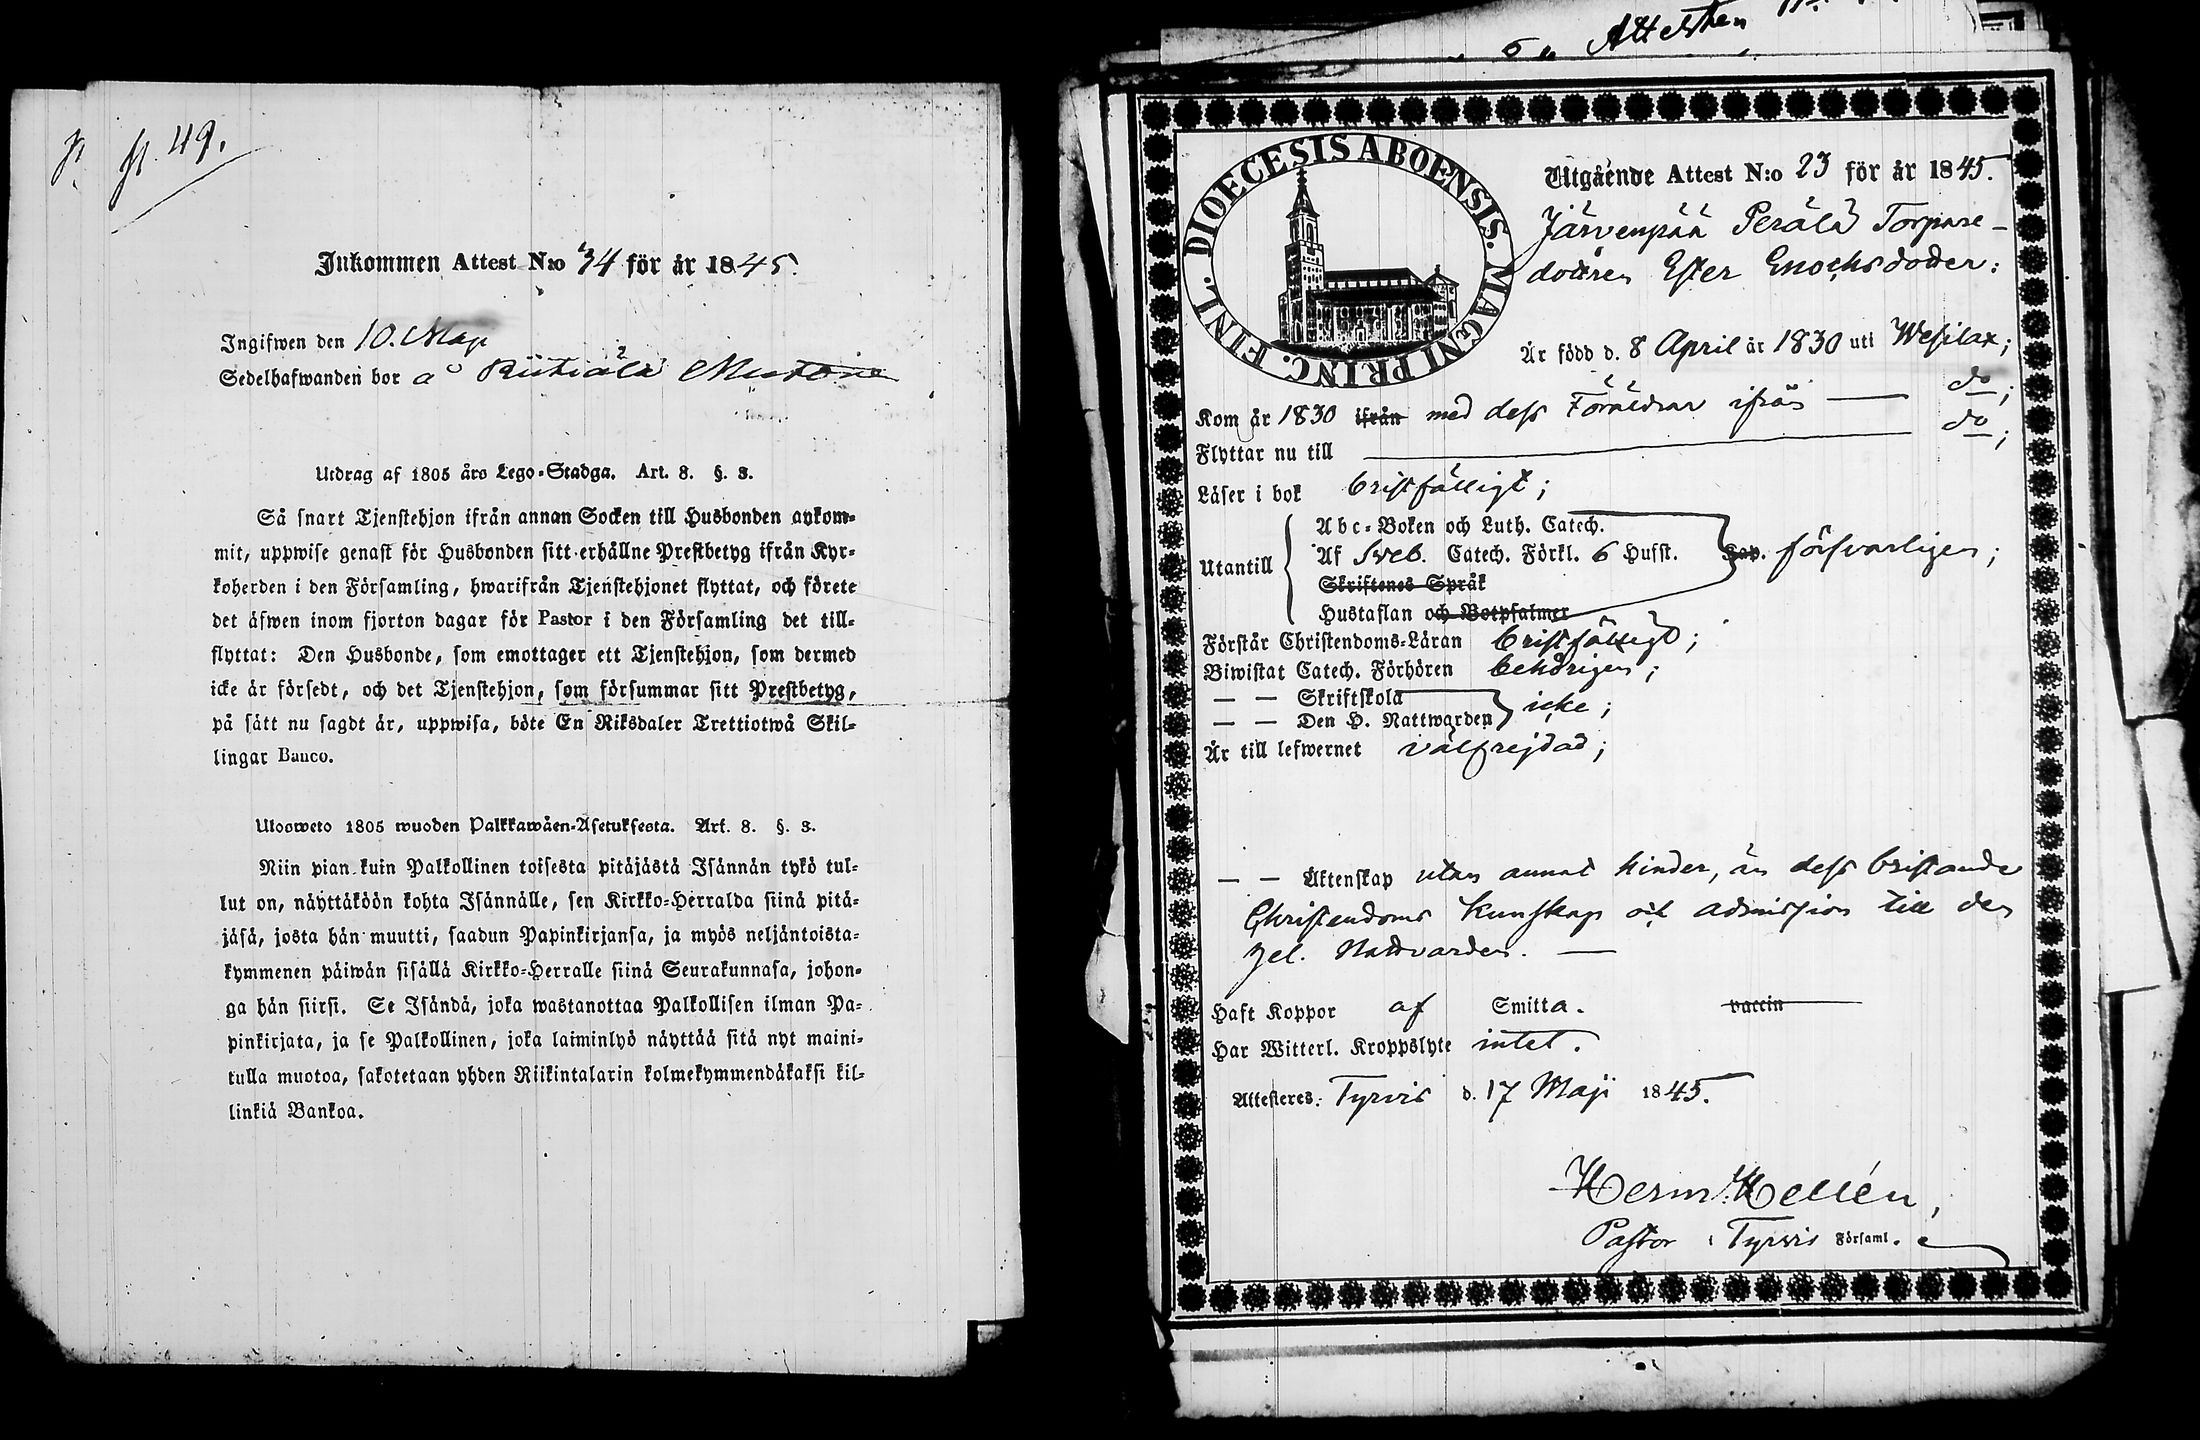 49.
Inkommen Attest N:o 34 för år 1845.
Ingifwen den 10. Maji
Sedelhafwanden bor å Riitiälä Mustone
Utdrag af 1805 års Lego-Stadga. Art. 8. §. 3.
Så snart Tjenstehjon ifrån annan Socken till Husbonden ankom-
mit, uppwise genast för Husbonden sitt erhållne Prestbetyg ifrån Kyr-
koherden i den Församling, hwarifrån Tjenstehjonet flyttat, och förete
det äfwen inom fjorton dagar för Pastor i den Församling det till-
flyttat: Den Husbonde, som emottager ett Tjenstehjon, som dermed
icke är försedt, och det Tjenstehjon, som försummar sitt Prestbetyg,
på sätt nu sagdt är, uppwisa, böte En Riksdaler Trettiotwå Skil-
lingar Banco.
Ulosweto 1805 wuoden Palkkawäen-Asetuksesta. Art. 8. §. 3.
Niin pian kuin Palkollinen toisesta pitäjästä Isännän tykö tul-
lut on, näyttäköön kohta Isännälle, sen Kirkko-Herralda siinä pitä-
jäsä, josta hän muutti, saadun Papinkirjansa, ja myös neljäntoista-
kymmenen päiwän sisällä Kirkko-Herralle siinä Seurakunnasa, johon-
ga hän siirsi. Se Isändä, joka wastanottaa Palkollisen ilman Pa-
pinkirjata, ja se Palkollinen, joka laiminlyö näyttää sitä nyt maini-
tulla muotoa, sakotetaan yhden Riikintalarin kolmekymmendäkaksi kil-
linkiä Bankoa.
6 Attesten
DIOECESIS ABOENSIS. MAGNI PRINC. FINL.
Utgående Attest N:o 23 för år 1845.
Järvenpää Perälä Torpare-
dottren Ester Enochsdotter:
Är född d. 8 April år 1830 uti Wesilax;
Kom år 1830 ifrån med dess Föräldrar ifrån — do;
Flyttar nu till — do;
Läser i bok bristfälligt;
Utantill
Abc-Boken och Luth. Catech.
Af Sveb. Catech. Förkl. 6 Hufst. Cap. försvarligen;
Skriftenes Språk
Hustaflan och Botpsalmer
Förstår Christendoms-Läran bristfälligt;
Biwistat Catech. Förhören behörigen;
— — Skriftskola
— — Den H. Nattwarden icke;
Är till lefwernet välfrejdad;
— — Äktenskap utan annat hinder, än dess bristande
Christendoms kunskap och admission till den
hel. Nattvarden. —
Haft Koppor af Smitta. vaccin
Har Witterl. Kroppslyte intet.
Attesteres. Tyrvis d. 17 Maji 1845.
Herm. Hellén,
Pastor i Tyrvis Församl.